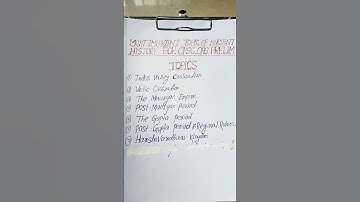 MOST IMPORTANT TOPIC OF ANCIENT
HISTORY FOR OPSC OAS PRELIM
TOPICS
Indus Valley Civilization
Vedic Civilization
The Mauryan Empire
Post Mauryan period
The Gupta period
Post Gupta period & Regional
Harshavardhana Kingdom